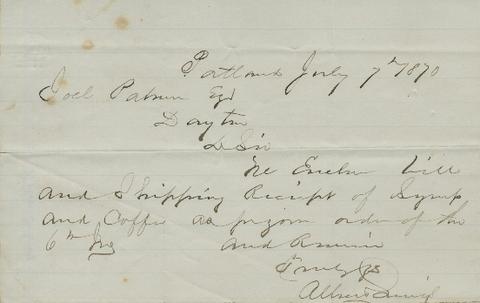 Portland July 7th 1870
Joel Palmer Esq
Dayton
D Sir
We Enclose Bill
and Shipping Receipt of Syrup
and Coffee as pr your order of the
6th Inst and Remain
Truly Yrs